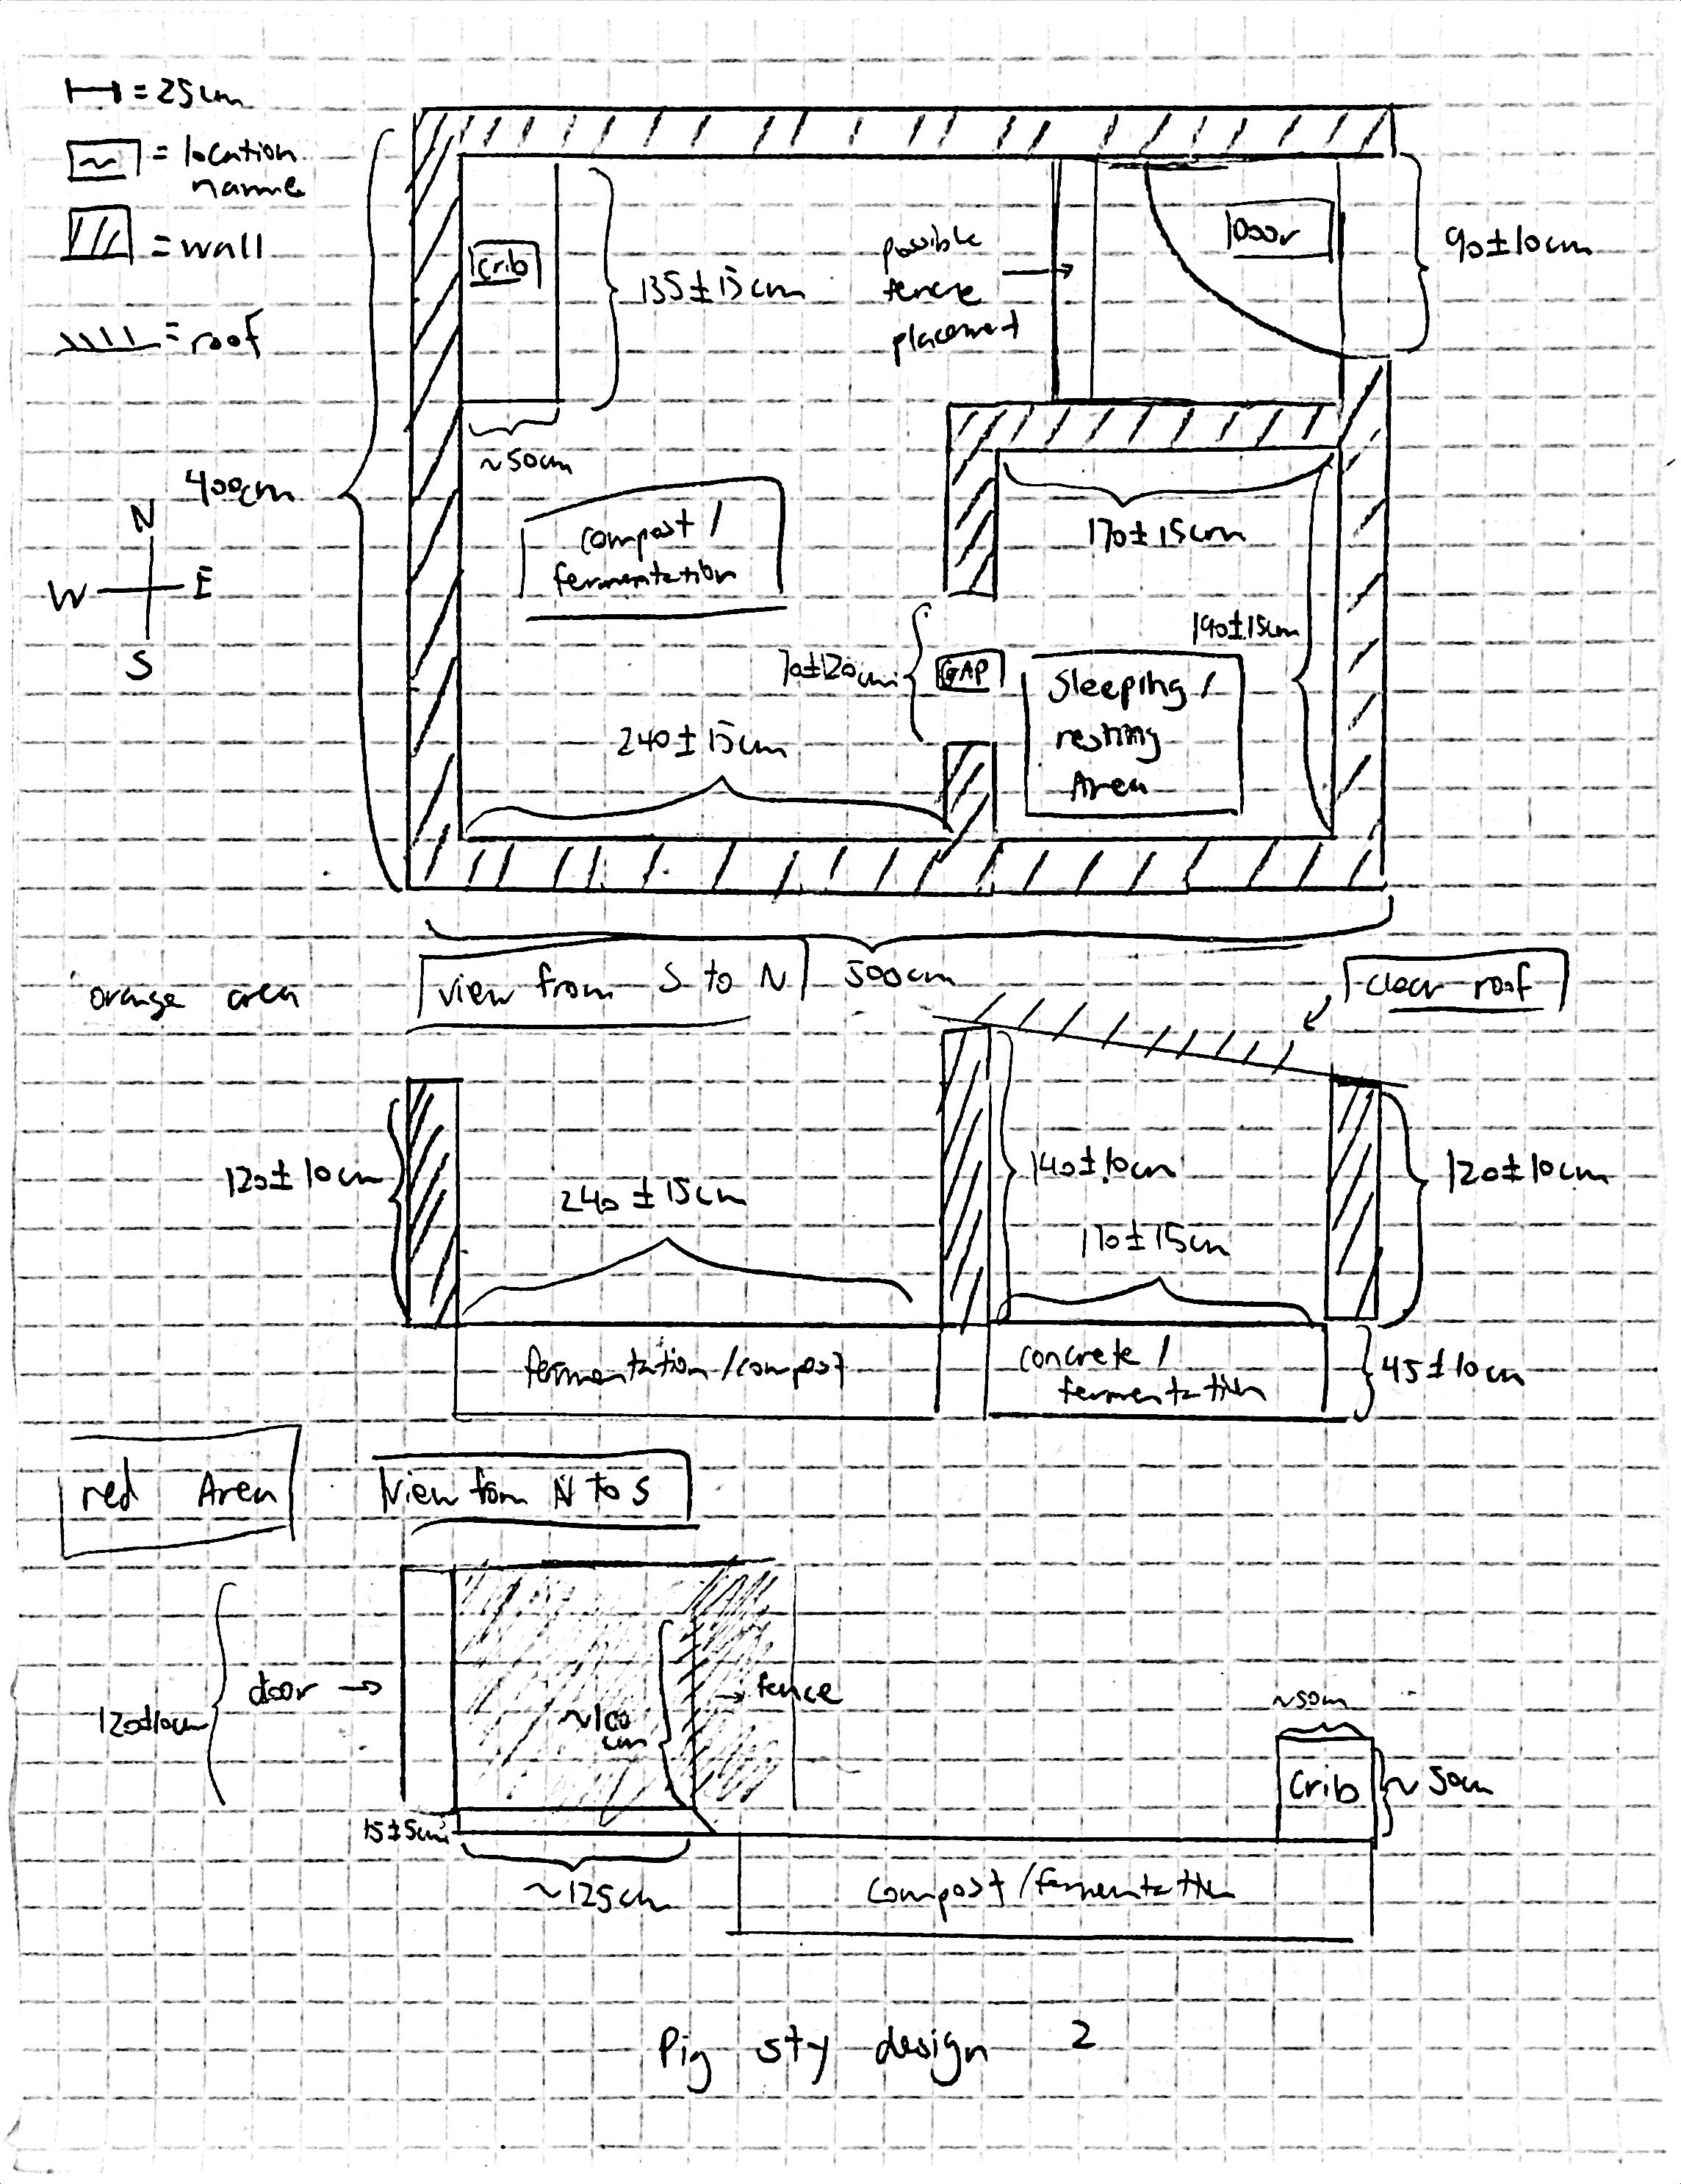 = 25cm
~ = location
name
= wall
= roof
Crib
135±15cm
possible
fence
placement
Door
90±10cm
~50cm
400cm
N
W E
S
compost /
fermentation
170±15cm
190±15cm
70±20cm
GAP
Sleeping /
resting
Area
240±15cm
500cm
orange area
view from S to N
clear roof
120±10cm
240±15cm
140±10cm
170±15cm
120±10cm
fermentation/compost
concrete /
fermentation
45±10cm
red Area
view from N to S
120±10cm
door
~100
cm
fence
~50cm
Crib
~50cm
15±5cm
~125cm
compost/fermentation
Pig sty design 2